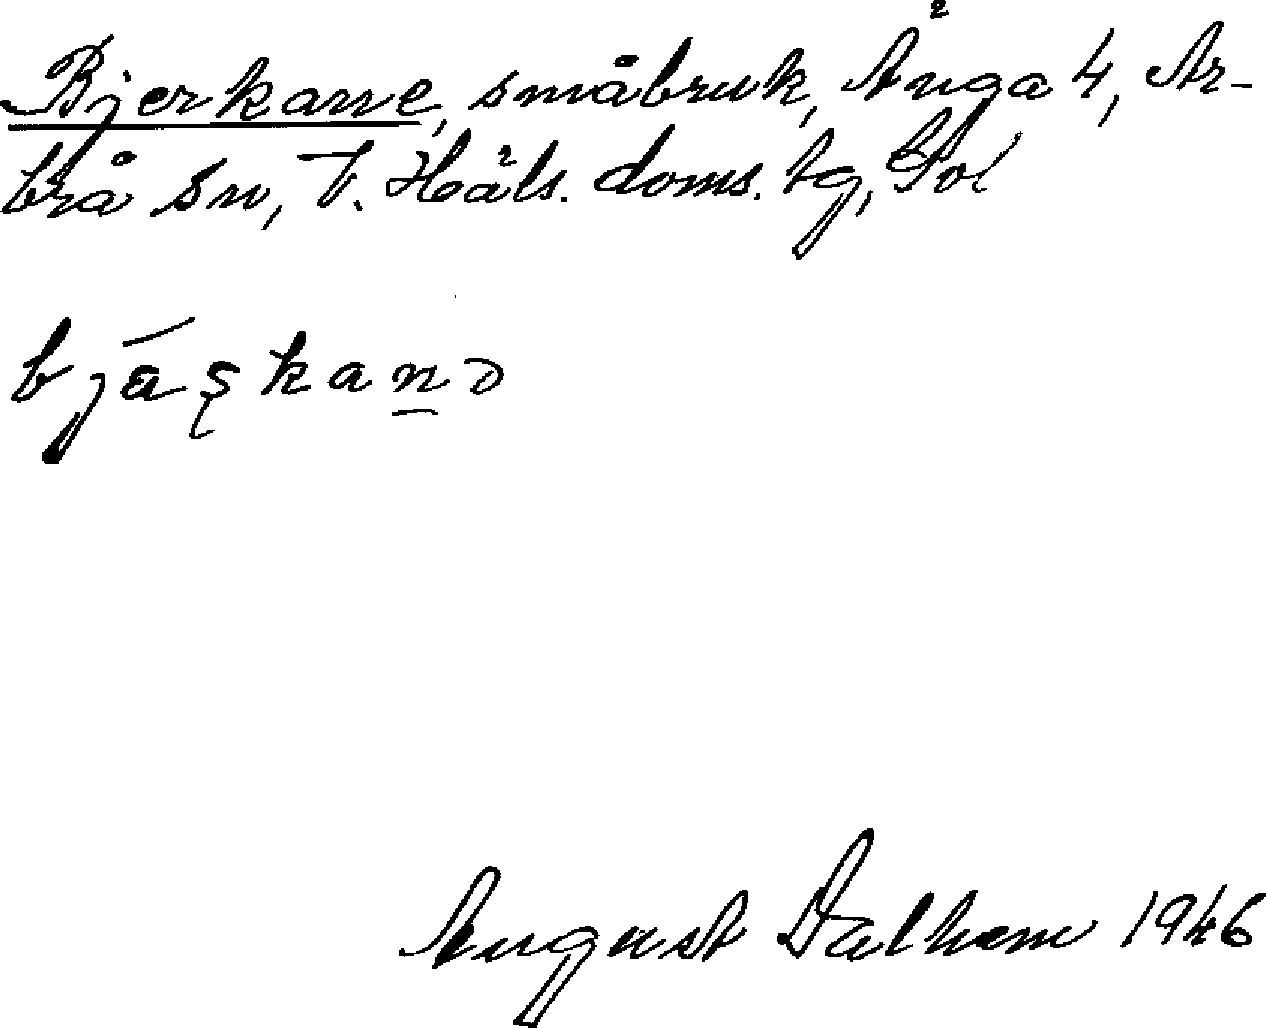 Bjerkane, småbruk, Änga 4, Ar-
brå sn, V. Häls. doms. tg,
bjäşkan̲ə
August Dalhem 1946